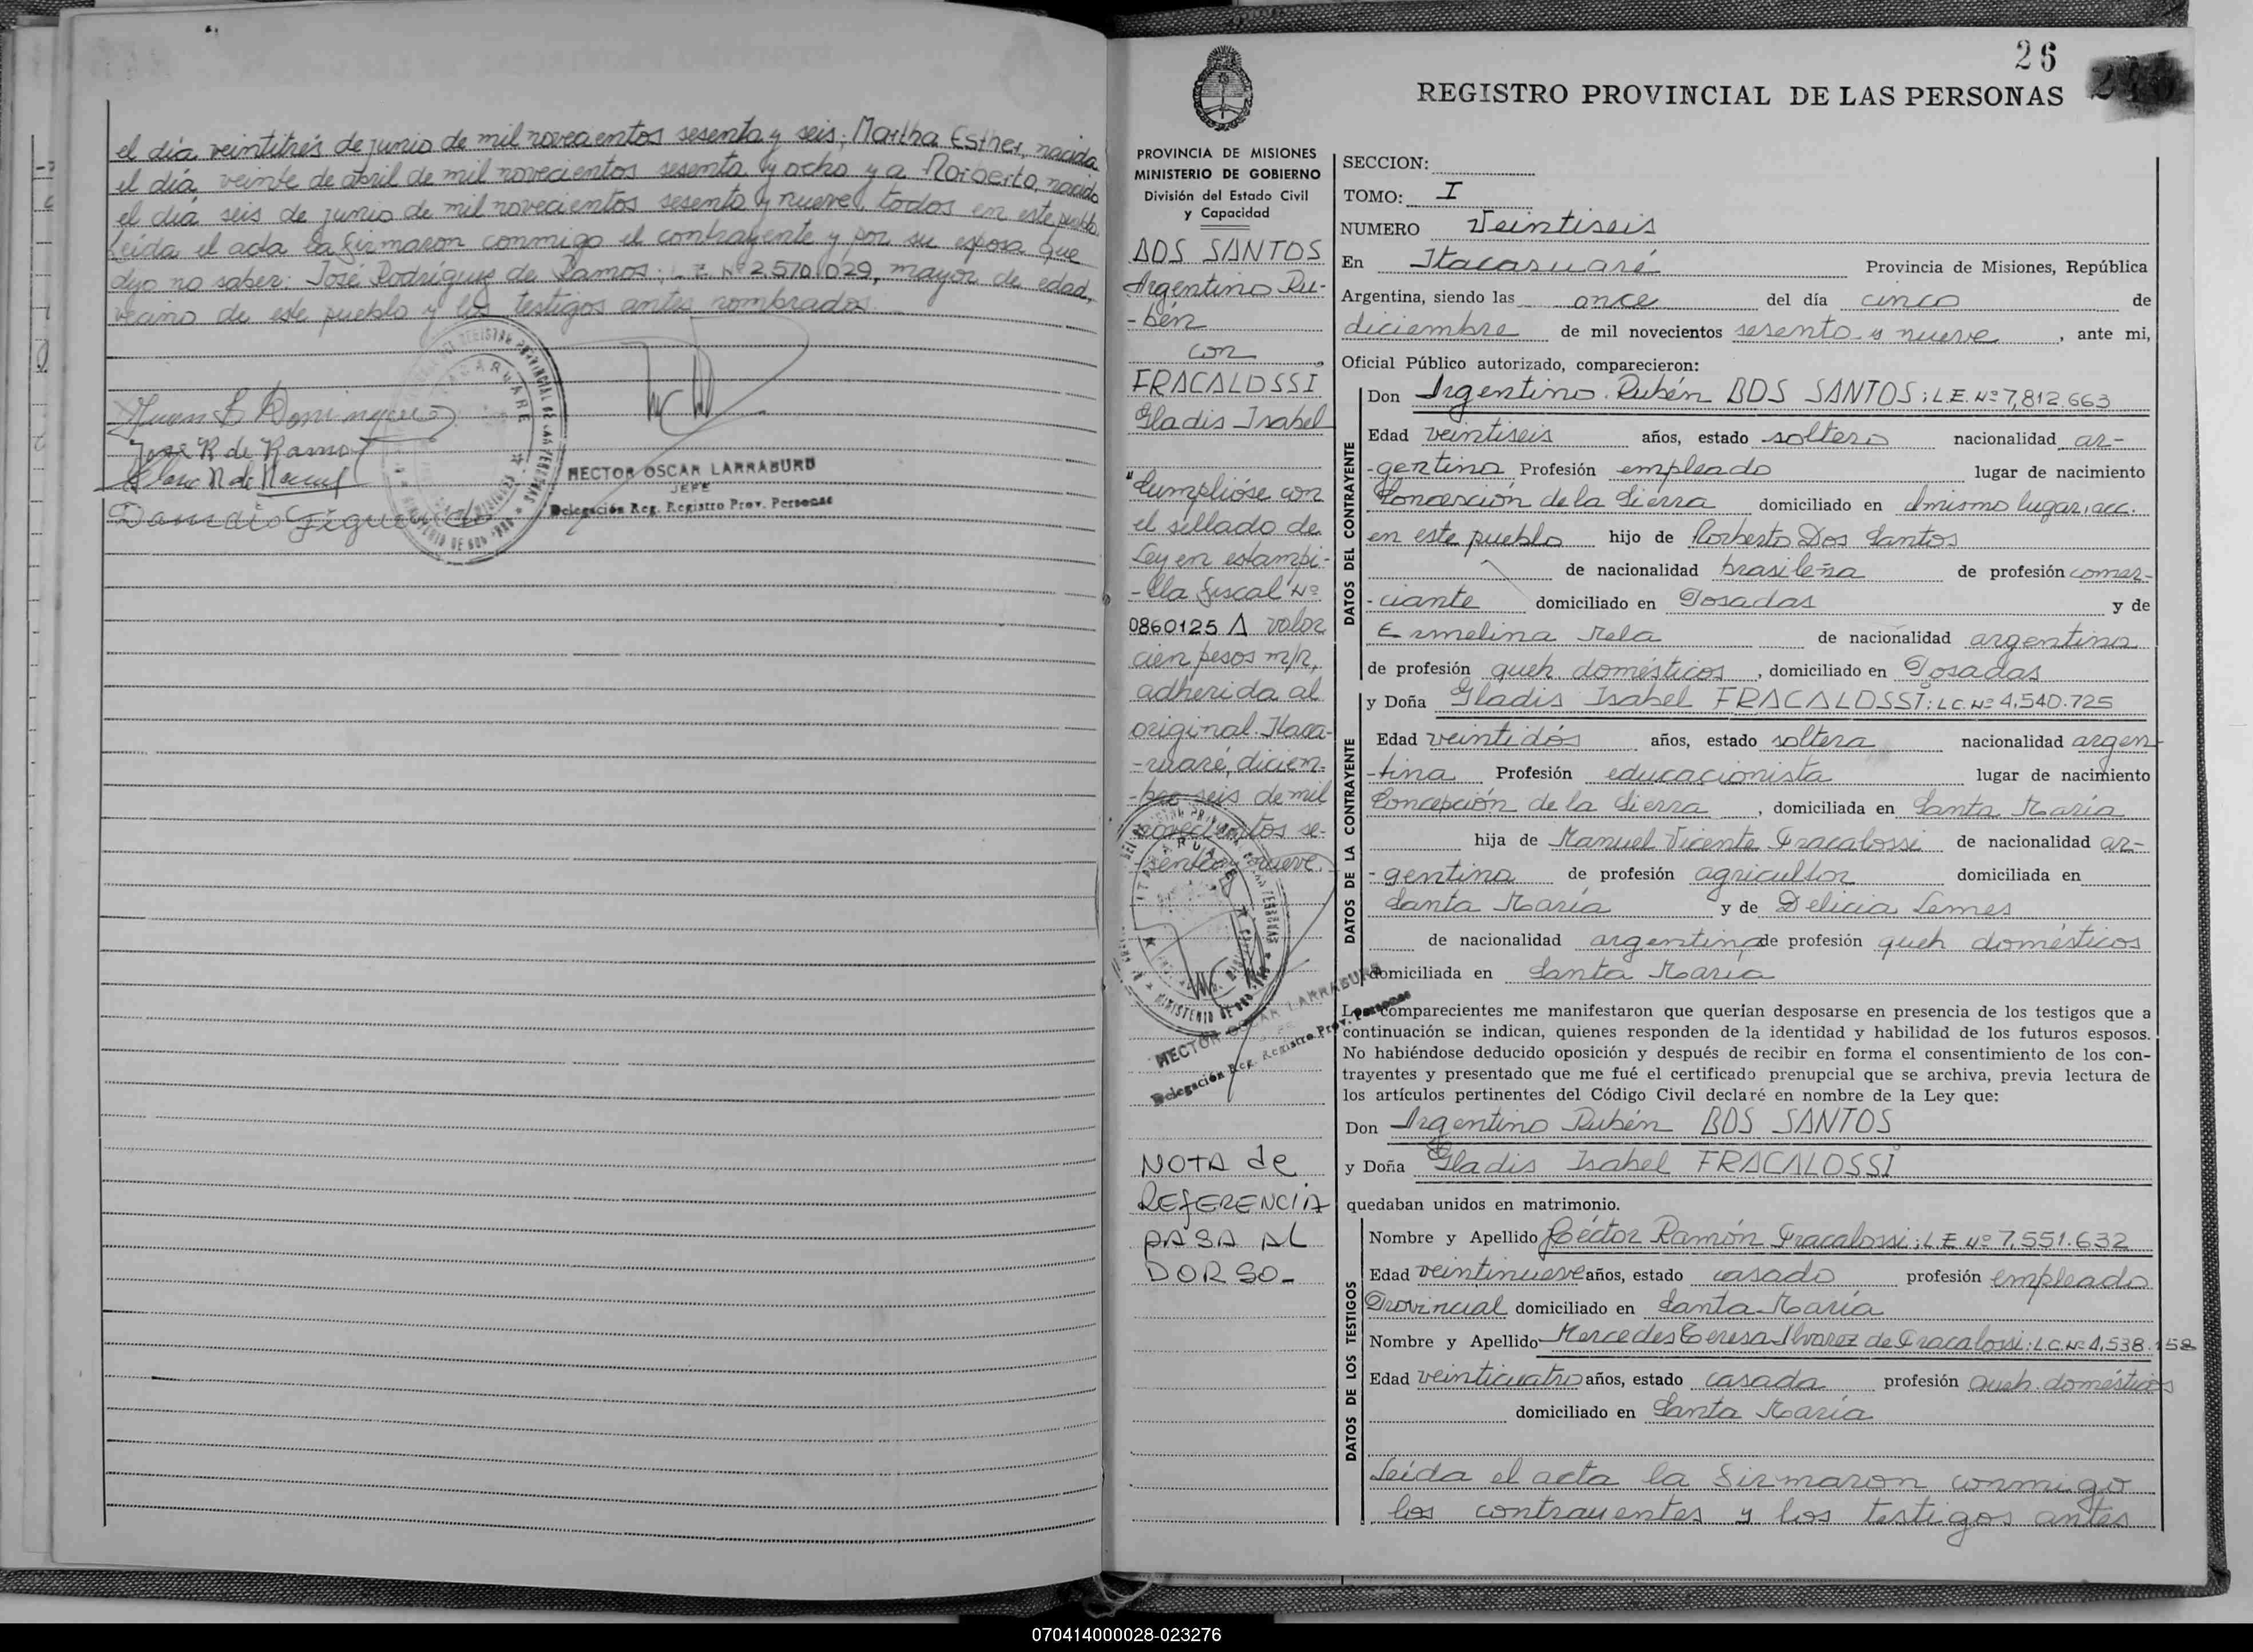 el día veintitrés de junio de mil novecientos sesenta y seis; Martha Esther, nacida
el día veinte de abril de mil novecientos sesenta y ocho y a Norberto, nacido
el día seis de junio de mil novecientos sesenta y nueve, todos en este pueblo.
Leída el acta la firmaron conmigo el contrayente y por su esposa que
dijo no saber: José Rodríguez de Ramos; L.E. Nº 2.570.029, mayor de edad,
vecino de este pueblo y los testigos antes nombrados.
José R de Ramos
HECTOR OSCAR LARRABURU
JEFE
Delegación Reg. Registro Prov. Personas
26
REGISTRO PROVINCIAL DE LAS PERSONAS
PROVINCIA DE MISIONES
MINISTERIO DE GOBIERNO
División del Estado Civil
y Capacidad
DOS SANTOS
Argentino Ru-
-bén
con
FRACALOSSI
Gladis Isabel
"Cumplióse con
el sellado de
Ley en estampi-
-lla fiscal Nº
0860125 A valor
cien pesos m/n,
adherida al
original. Itaca-
-ruaré, diciem-
-bre seis de mil
novecientos se-
-senta y nueve.
HECTOR OSCAR LARRABURU
Delegación Reg. Registro Prov. Personas
NOTA de
REFERENCIA
PASA AL
DORSO-
SECCION:
TOMO: I
NUMERO Veintiseis
En Itacaruaré Provincia de Misiones, República
Argentina, siendo las once del día cinco de
diciembre de mil novecientos sesenta y nueve, ante mi,
Oficial Público autorizado, comparecieron:
DATOS DEL CONTRAYENTE
Don Argentino Rubén DOS SANTOS; L.E. Nº 7,812.663
Edad veintiseis años, estado soltero nacionalidad ar-
-gentina Profesión empleado lugar de nacimiento
Concepción de la Sierra domiciliado en el mismo lugar, acc.
en este pueblo hijo de Norberto Dos Santos
de nacionalidad brasileña de profesión comer-
-ciante domiciliado en Posadas y de
Ermelina Mela de nacionalidad argentina
de profesión queh. domésticos, domiciliado en Posadas
DATOS DE LA CONTRAYENTE
y Doña Gladis Isabel FRACALOSSI; L.C. Nº 4.540.725
Edad veintidós años, estado soltera nacionalidad argen-
-tina Profesión educacionista lugar de nacimiento
Concepción de la Sierra, domiciliada en Santa María
hija de Manuel Vicente Fracalossi de nacionalidad ar-
-gentina de profesión agricultor domiciliada en
Santa María y de Delicia Lemes
de nacionalidad argentina de profesión queh domésticos
domiciliada en Santa María
Los comparecientes me manifestaron que querían desposarse en presencia de los testigos que a
continuación se indican, quienes responden de la identidad y habilidad de los futuros esposos.
No habiéndose deducido oposición y después de recibir en forma el consentimiento de los con-
trayentes y presentado que me fué el certificado prenupcial que se archiva, previa lectura de
los artículos pertinentes del Código Civil declaré en nombre de la Ley que:
Don Argentino Rubén DOS SANTOS
y Doña Gladis Isabel FRACALOSSI
quedaban unidos en matrimonio.
DATOS DE LOS TESTIGOS
Nombre y Apellido Héctor Ramón Fracalossi; L.E Nº 7.551.632
Edad veintinueve años, estado casado profesión empleado
Provincial domiciliado en Santa María
Nombre y Apellido Mercedes Teresa Alvarez de Fracalossi; L.C. Nº 4,538.158
Edad veinticuatro años, estado casada profesión queh. domésticos
domiciliado en Santa María
Leída el acta la firmaron conmigo
los contrayentes y los testigos antes
070414000028-023276